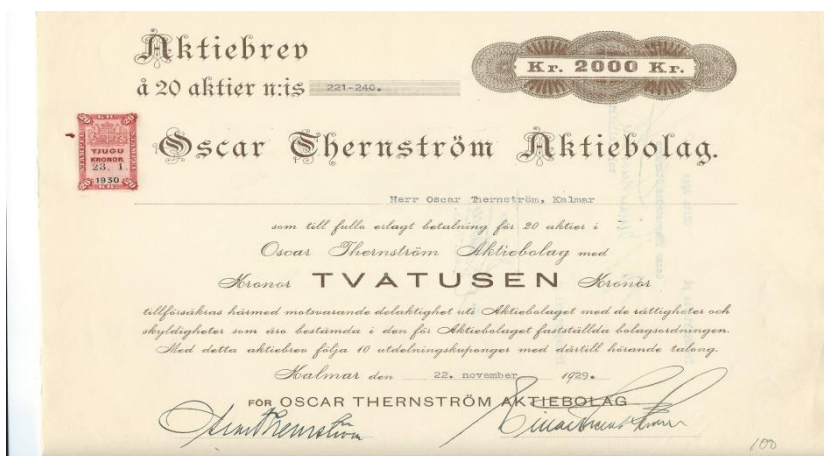 Aktiebrev
Kr. 2000 Kr.
à 20 aktier n:is 221-240.
Oscar Thernström Aktiebolag.
STÄMPEL
KR
20
20
TJUGU
KRONOR
23. 1.
1930
KR.
Herr Oscar Thernström, Kalmar
som till fullo erlagt betalning för 20 aktier i
Oscar Thernström Aktiebolag med
Kronor TVATUSEN Kronor
tillförsäkras härmed motsvarande delaktighet uti Aktiebolaget med de rättigheter och
skyldigheter som äro bestämda i den för Aktiebolaget fastställda bolagsordningen.
Med detta aktiebrev följa 10 utdelningskuponger med därtill hörande talong.
Kalmar den 22. november 1929.
FÖR OSCAR THERNSTRÖM AKTIEBOLAG
Oscar Thernström
100